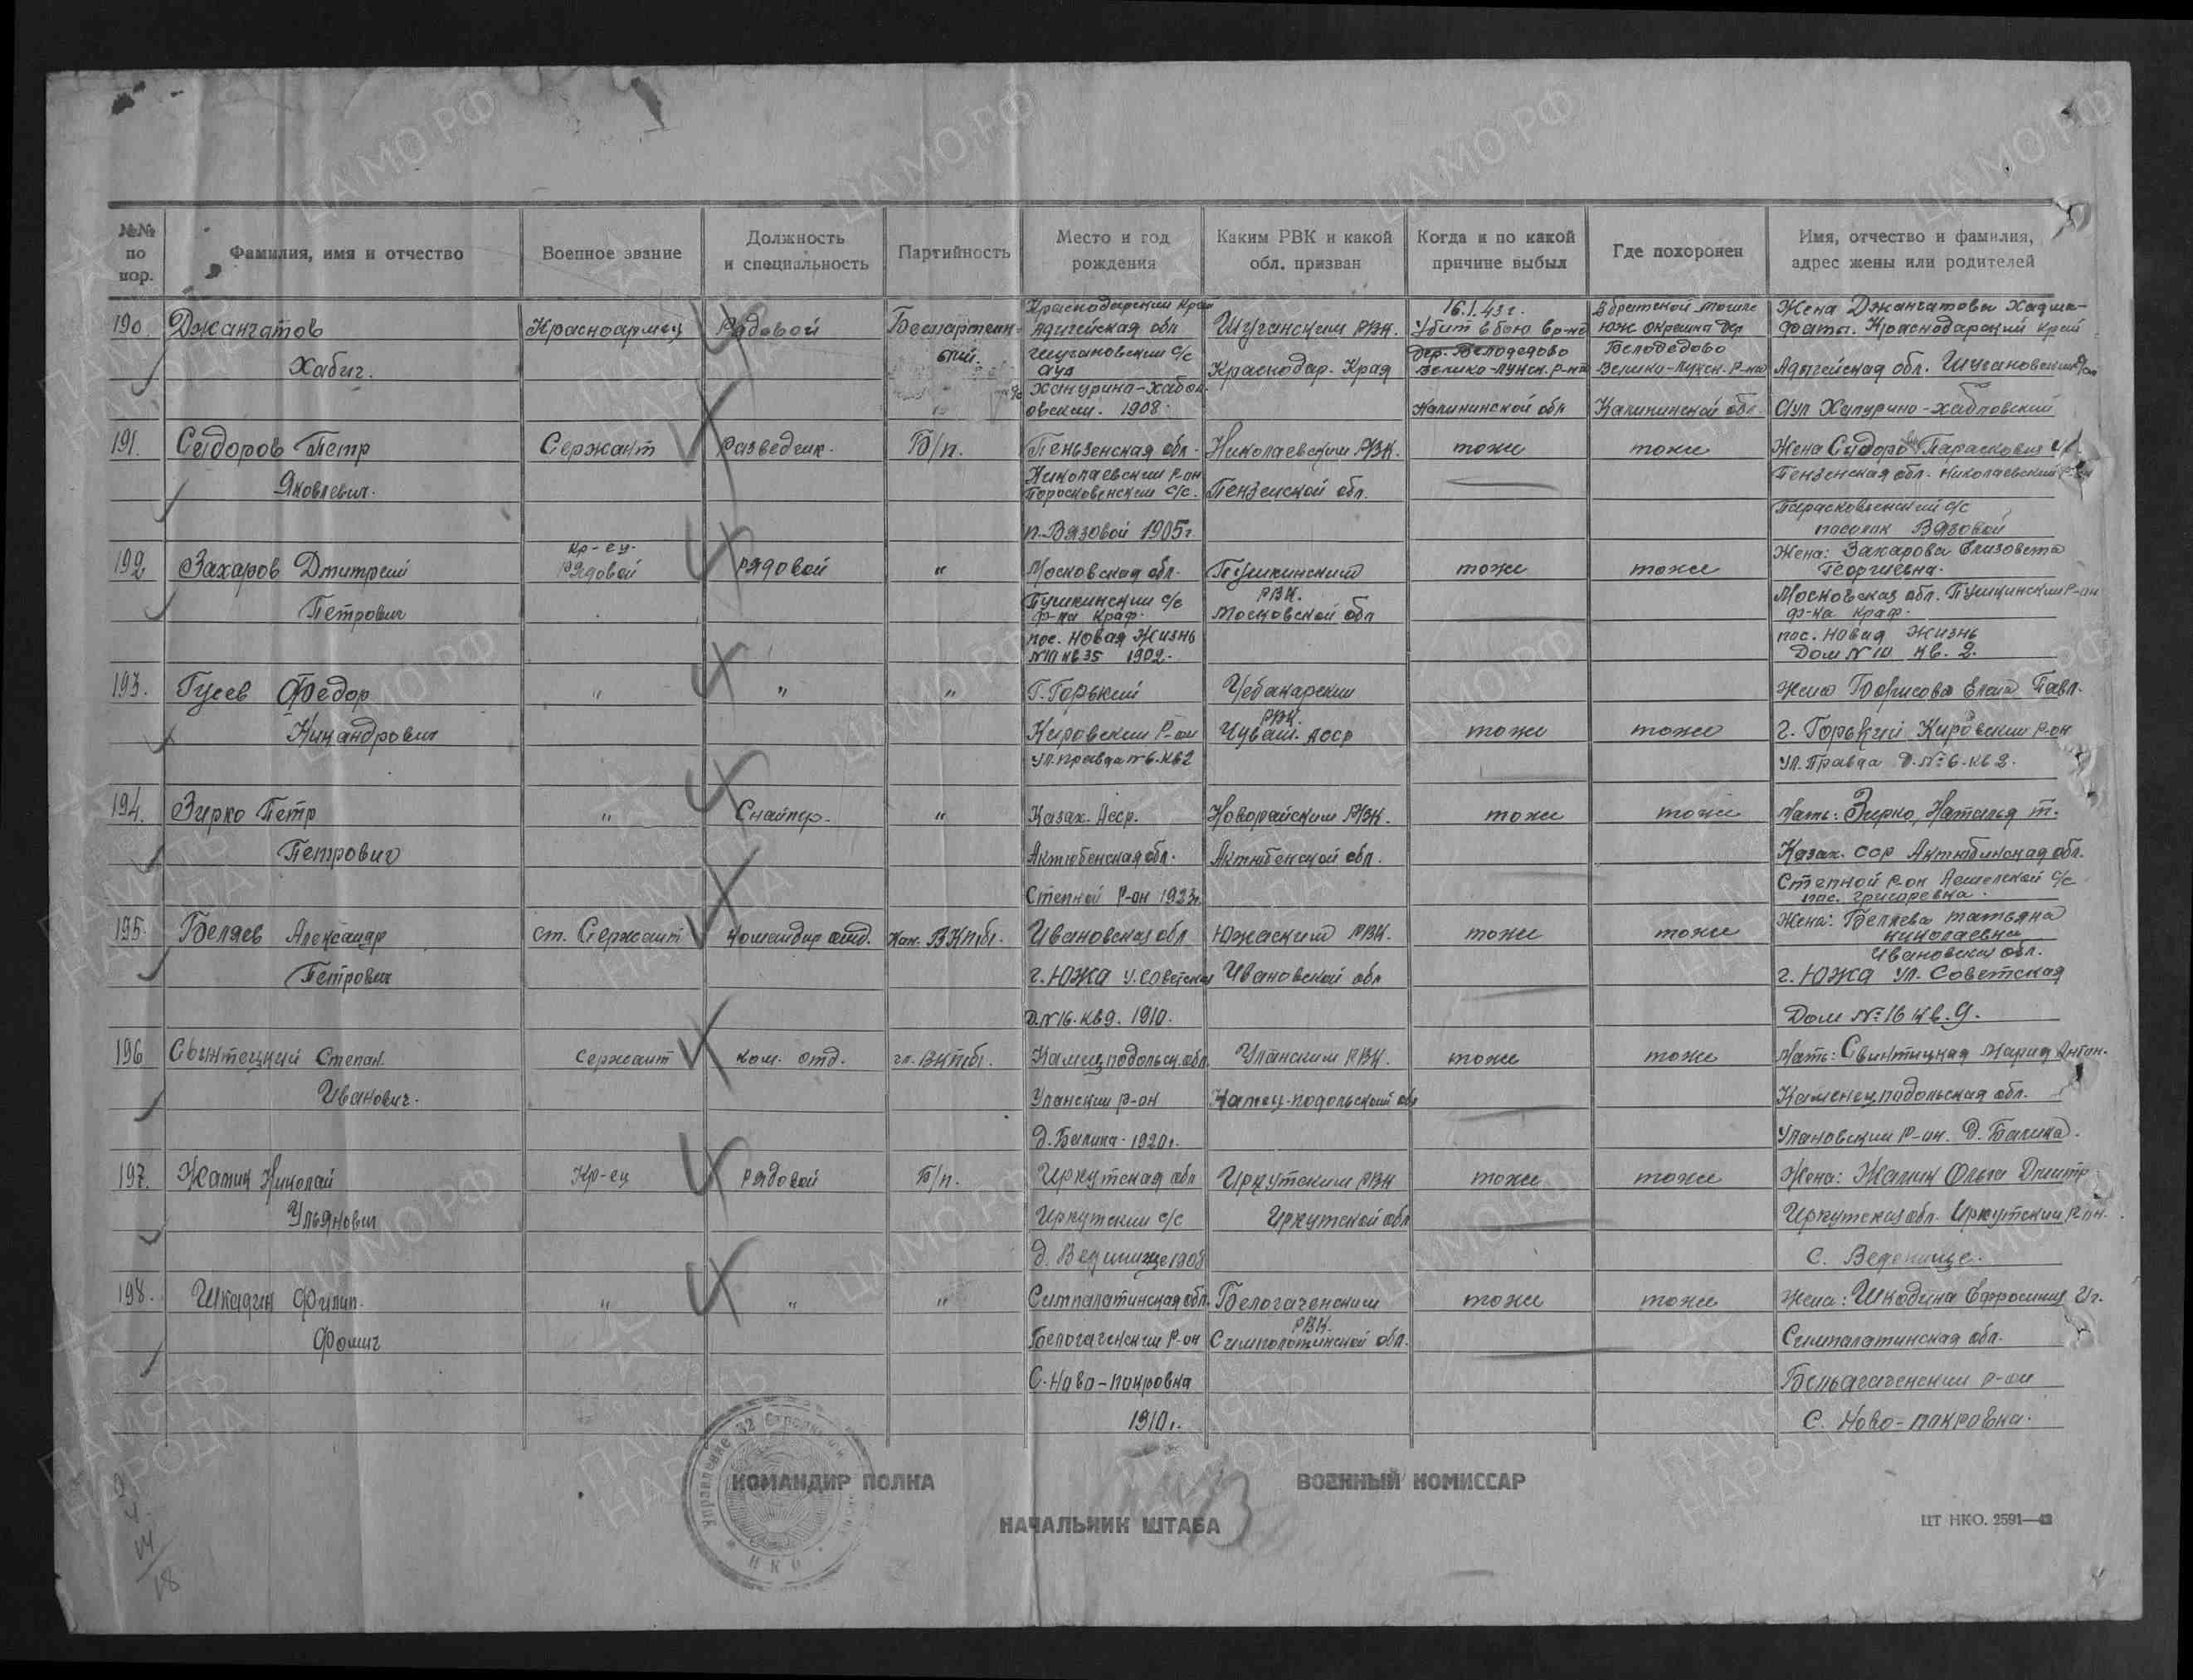 №№ по пор.
Фамилия, имя и отчество
Военное звание
Должность и специальность
Партийность
Место и год рождения
Каким РВК и какой обл. призван
Когда и по какой причине выбыл
Где похоронен
Имя, отчество и фамилия, адрес жены или родителей
190. Джангатов
Хабиг.
Красноармец
Рядовой
Беспартейн-
ный.
Краснодарский край
Адигейская обл
аул
1908.
Краснодар. Край
16.1.43 г.
Убит в бою в р-не
дер. Белодедово
Велико-Лукск. р-на
Калининской обл
В братской могиле
юж окраина дер
Белодедово
Велико-Лукск. р-на
Калининской обл.
Жена Джангатова
Краснодарский край
Адигейская обл.
Аул
191. Сидоров Петр
Яковлевич.
Сержант
Разведчик.
Б/п.
Пеньзенская обл.
Николаевский р-он
п. Вязовой 1905 г
Николаевским РВК.
Пензенской обл.
тоже
тоже
Жена
Пензенская обл. Николаевский р-он
поселок Вязовой
192 Захаров Дмитрий
Петрович
Кр-ец.
Рядовой
Рядовой
"
Московская обл.
Пушкинский с/с
ф-ка Краф.
пос. Новая Жизнь
№10 кв 35 1902.
Пушкинский
РВК.
Московской обл
тоже
тоже
Жена: Захарова Елизовета
Георгиевна.
Московская обл. Пушкинский р-он
ф-ка краф.
пос. Новая Жизнь
Дом №10 кв. 2.
193. Гусев Федор
Никандрович
"
"
"
Г. Горький
Кировский р-он
ул. Правда №6. кв 2
РВК.
Чуваш. АССР
тоже
тоже
Жена Борисова Елена Павл.
г. Горький Кировский р-он
ул. Правда д. №6. кв 2.
194. Зирко Петр
Петрович
"
Снайпер.
"
Казах. Асср.
Актюбенская обл.
Степной р-он 1923 г.
Новорайским РВК.
Актюбенской обл.
тоже
тоже
Мать: Зирко Наталья Т.
Казах. ССР Актюбинская обл.
Степной р-он с/с
пос. Григоревка.
195. Беляев Александр
Петрович
ст. Сержант
Командир отд.
Кан. ВКПбг.
Ивановская обл
г. Южа у. Советская
д. №16. кв 9. 1910.
Южаский РВК.
Ивановской обл
тоже
тоже
Жена: Беляева Татьяна
Николаевна
Ивановской обл.
г. Южа ул. Советская
Дом №16 кв. 9.
196 Свинтецкий Степан.
Иванович.
Сержант
ком. отд.
чл. ВКПбг.
Камецподольск. обл.
Уланский р-он
д. Балика. 1920 г.
Уланским РВК.
Камец-подольский обл
тоже
тоже
Мать: Свинтицкая Мария Антон.
Каменецподольская обл.
Улановский р-он. д. Балика.
197. Жалик Николай
Ульянович
Кр-ец
Рядовой
Б/п.
Иркутская обл
Иркутский с/с
1908
Иркутским РВК
Иркутской обл
тоже
тоже
Жена: Жалик Ольга Дмитр
Иркутская обл. Иркутский р-он.
198. Шкадин Филип.
Фомич
"
"
"
Симпалатинская обл.
Белогаченский р-он
С. Ново-покровка
1910 г.
Белогаченским
РВК.
Симполотинской обл.
тоже
тоже
Жена: Шкодина Ефросиния Иг.
Симпалатинская обл.
Бельагаченский р-он
С. Ново-покровка.
КОМАНДИР ПОЛКА
ВОЕННЫЙ КОМИССАР
НАЧАЛЬНИК ШТАБА
ЦТ НКО. 2591—42
Управление 32 Стрелковой
НКО
14
18
ЦАМО РФ
ПАМЯТЬ НАРОДА